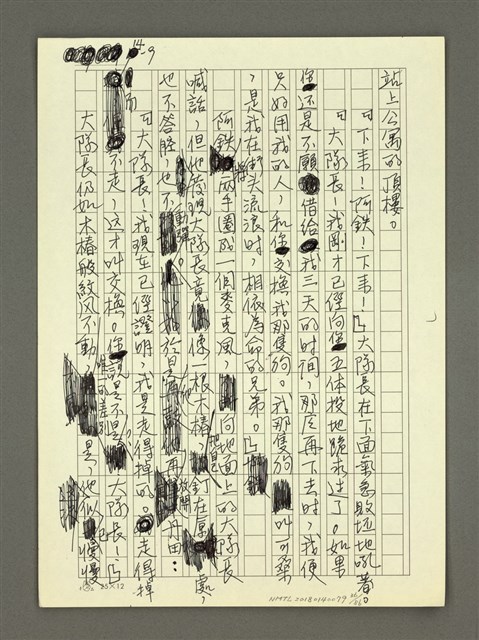 14-9
站上公寓的頂樓。
『下車!阿鉄!下車!』大隊長在下面氣急敗坯地吼着。
『大隊長!我剛才已經向您五体投地跪求过了。如果
您还是不願借给我三天的时间,那底再下去时,我便
只好用我的人,和您交換我那隻狗。我那隻狗叫可桑
,是我在街头流浪时,相依为命的兄弟。』
阿鉄兩手圍成一個麥克風,向地面上的大隊長
喊話,但他發現大隊長竟像根木樁,釘在厚處,
也不答腔,也不動彈。於是再丹田:
『大隊長!我現在已經證明,我是走得掉的。走得掉
而不走,这才叫交換。您說是不是?大隊長!』
大隊長仍如木樁般紋风不動,唯一的差别是,他似已慢慢
25×12
NMTL20180140079